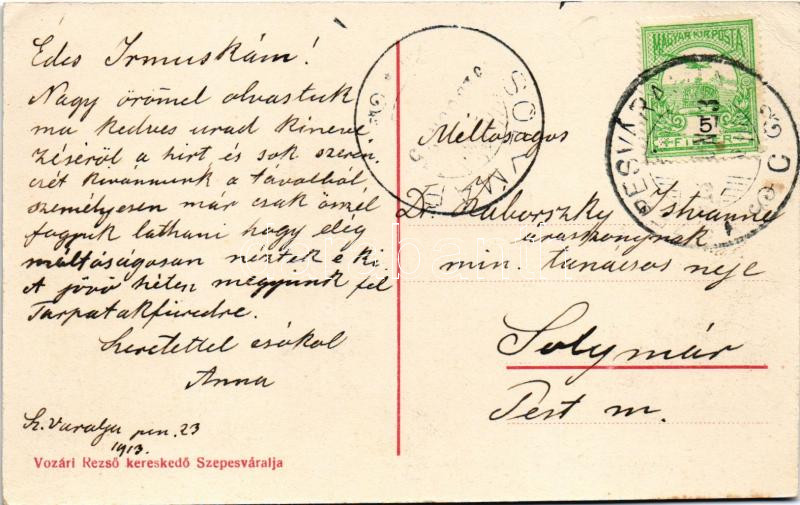 Edes Irmuskám!
Nagy örömel olvastuk
ma kedves urad kineve
zéséröl a hirt és sok szeren,
csét kivánunk a távolból
személyesen már csak öszel
fogjuk láthani hogy elég
máltóságosan néztek e ki
A jövö héten megyünk fel
Tarpatakfüredre.
Szeretettel csókol
Anna
Sz. Varalja jun. 23
1913.
Vozári Rezső kereskedő Szepesváralja
MAGYAR KIR. POSTA
5
FILLÉR
SOLYM
Méltoságos
Dr. Istvánné
úrasszonynak
min. tanácsos neje
Solymár
Pest m.